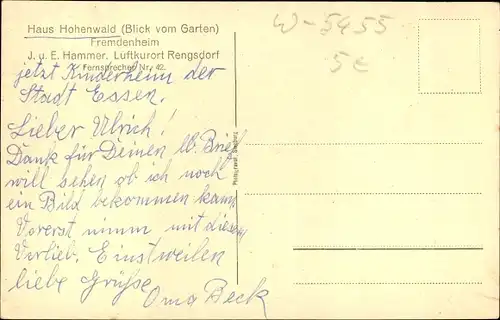 Haus Hohenwald (Blick vom Garten)
Fremdenheim
J. u. E. Hammer, Luftkurort Rengsdorf
Fernsprecher Nr. 42.
jetzt Kinderheim der
Stadt Essen.
Lieber Ulrich!
Dank für Deinen lb. Brief
will sehen ob ich noch
ein Bild bekommen kann
Vorerst nimm mit diesem
Verlieb. Einstweilen
liebe Grüße
Oma Beck
W-5455
5€